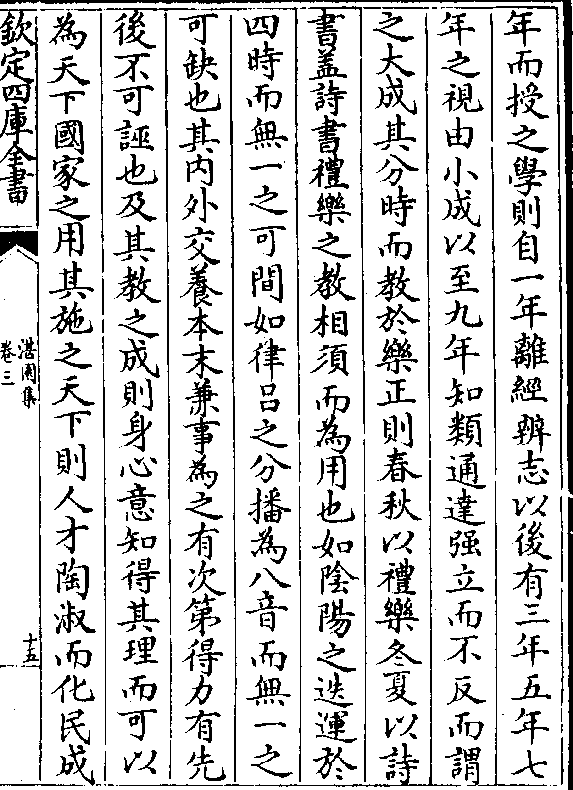 年而授之學則自一年離經辨志以後有三年五年七
年之視由小成以至九年知類通達强立而不反而謂
之大成其分時而教於樂正則春秋以禮樂冬夏以詩
書葢詩書禮樂之教相須而為用也如陰陽之迭運於
四時而無一之可間如律呂之分播為八音而無一之
可缺也其内外交養本末兼事為之有次第得力有先
後不可誣也及其教之成則身心意知得其理而可以
為天下國家之用其施之天下則人才陶淑而化民成
欽定四庫全書
湛園集
卷三
十五